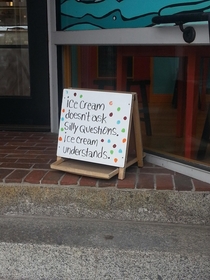 ice cream
doesn't ask
silly questions.
ice cream
understands.